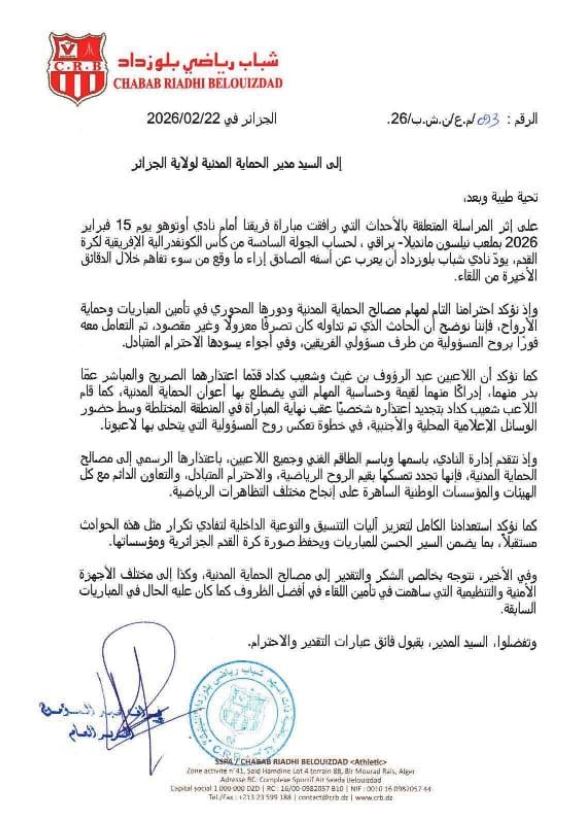 شباب رياضي بلوزداد
C.R.B
CHABAB RIADHI BELOUIZDAD
الرقم : 093/م.ع/ن.ش.ب/26.
الجزائر في 2026/02/22
إلى السيد مدير الحماية المدنية لولاية الجزائر
تحية طيبة وبعد،
على إثر المراسلة المتعلقة بالأحداث التي رافقت مباراة فريقنا أمام نادي أوتوهو يوم 15 فبراير
2026 بملعب نيلسون مانديلا- براقي ، لحساب الجولة السادسة من كأس الكونفدرالية الإفريقية لكرة
القدم، يودّ نادي شباب بلوزداد أن يعرب عن أسفه الصادق إزاء ما وقع من سوء تفاهم خلال الدقائق
الأخيرة من اللقاء.
وإذ نؤكد احترامنا التام لمهام مصالح الحماية المدنية ودورها المحوري في تأمين المباريات وحماية
الأرواح، فإننا نوضح أن الحادث الذي تم تداوله كان تصرفًا معزولًا وغير مقصود، تم التعامل معه
فورًا بروح المسؤولية من طرف مسؤولي الفريقين، وفي أجواء يسودها الاحترام المتبادل.
كما نؤكد أن اللاعبين عبد الرؤوف بن غيث وشعيب كداد قدّما اعتذارهما الصريح والمباشر عمّا
بدر منهما، إدراكًا منهما لقيمة وحساسية المهام التي يضطلع بها أعوان الحماية المدنية، كما قام
اللاعب شعيب كداد بتجديد اعتذاره شخصيًا عقب نهاية المباراة في المنطقة المختلطة وسط حضور
الوسائل الإعلامية المحلية والأجنبية، في خطوة تعكس روح المسؤولية التي يتحلى بها لاعبونا.
وإذ تتقدم إدارة النادي، باسمها وباسم الطاقم الفني وجميع اللاعبين، باعتذارها الرسمي إلى مصالح
الحماية المدنية، فإنها تجدد تمسكها بقيم الروح الرياضية، والاحترام المتبادل، والتعاون الدائم مع كل
الهيئات والمؤسسات الوطنية الساهرة على إنجاح مختلف التظاهرات الرياضية.
كما نؤكد استعدادنا الكامل لتعزيز آليات التنسيق والتوعية الداخلية لتفادي تكرار مثل هذه الحوادث
مستقبلاً، بما يضمن السير الحسن للمباريات ويحفظ صورة كرة القدم الجزائرية ومؤسساتها.
وفي الأخير، نتوجه بخالص الشكر والتقدير إلى مصالح الحماية المدنية، وكذا إلى مختلف الأجهزة
الأمنية والتنظيمية التي ساهمت في تأمين اللقاء في أفضل الظروف كما كان عليه الحال في المباريات
السابقة.
وتفضلوا، السيد المدير، بقبول فائق عبارات التقدير والاحترام.
المدير العام
SSPA / CHABAB RIADHI BELOUIZDAD <Athletic>
Zone activité n°41, Said Hamdine Lot 4 terrain 88, Bir Mourad Rais, Alger
Adresse RC: Complexe Sportif Ait Seeda Belouizdad
Capital social 1 000 000 DZD | RC : 16/00-0982057 B10 | NIF : 0010 16 0982057 44
Tel./Fax : +213 23 599 188 | contact@crb.dz | www.crb.dz